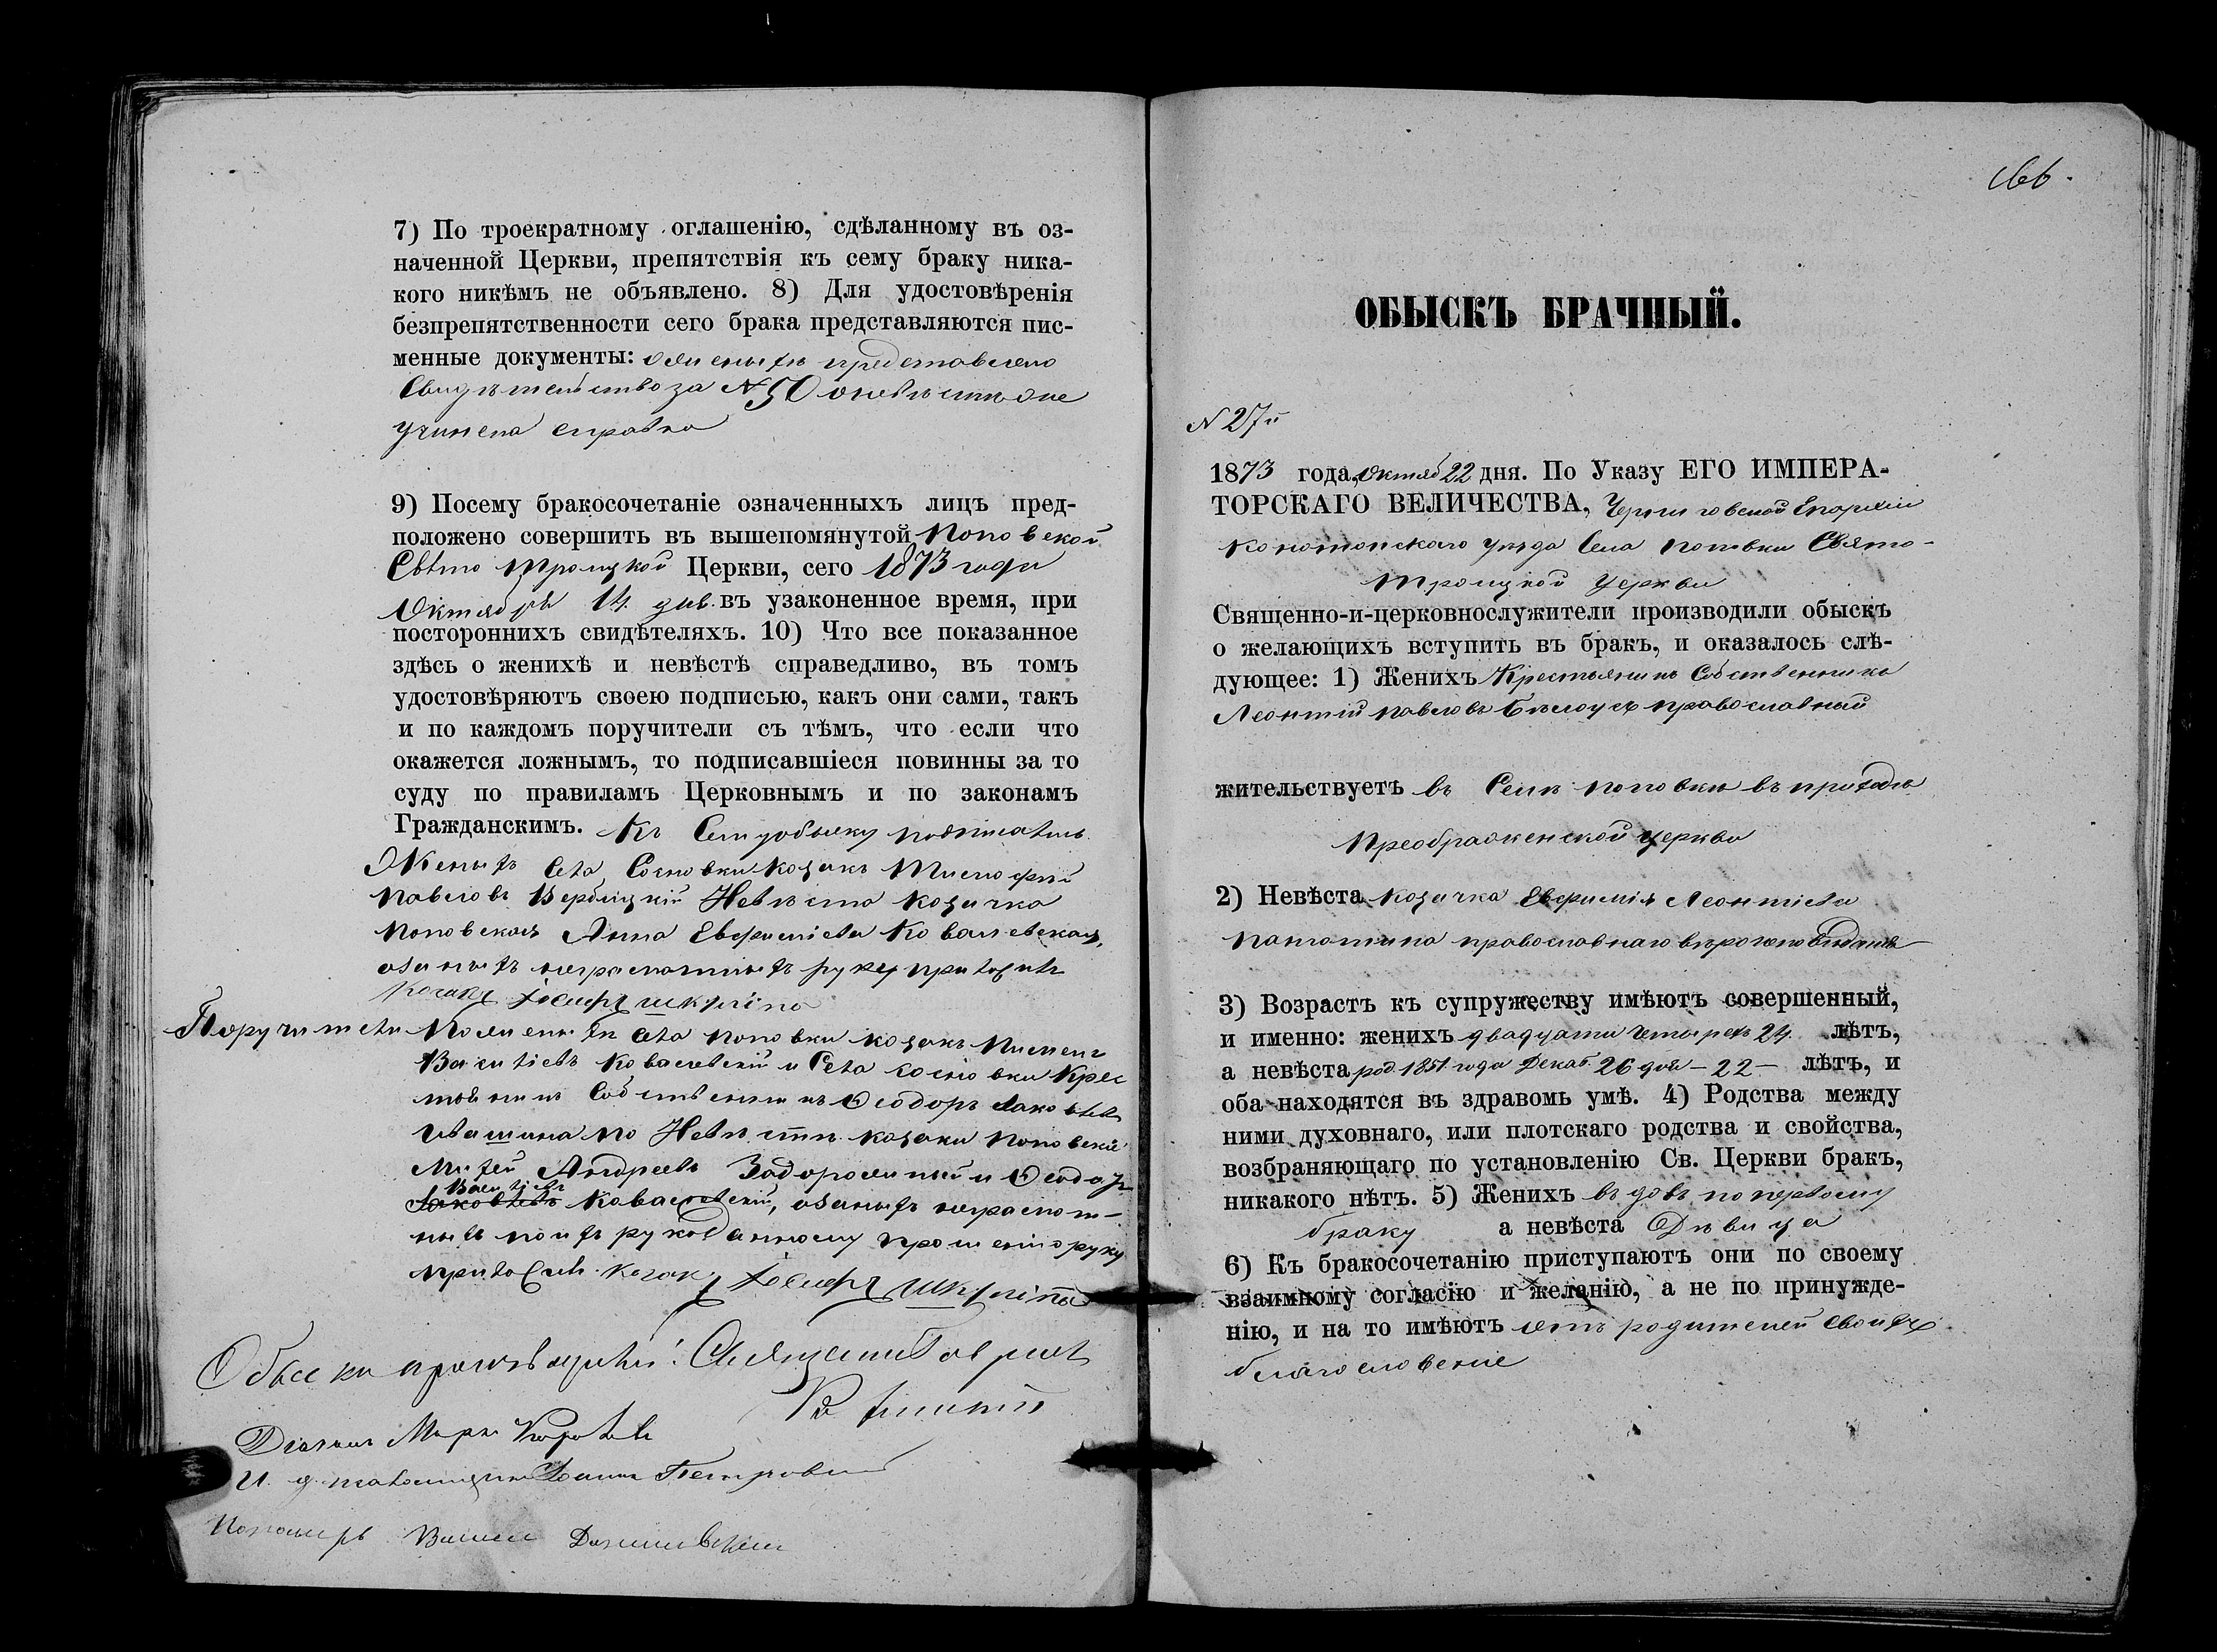 7) По троекратному оглашенію, сдѣланному въ оз-
наченной Церкви, препятствія къ сему браку ника-
кого никѣмъ не объявлено. 8) Для удостовѣренія
безпрепятственности сего брака представляются пис-
менные документы: о женихѣ представлено
Свидѣтельство за № 50 о невѣстѣ же
учинена справка
9) Посему бракосочетаніе означенныхъ лицъ пред-
положено совершить въ вышепомянутой Поповской
Свято Троицкой Церкви, сего 1873 года
Октября 14 дня въ узаконенное время, при
постороннихъ свидѣтеляхъ. 10) Что все показанное
здѣсь о женихѣ и невѣстѣ справедливо, въ томъ
удостовѣряютъ своею подписью, какъ они сами, такъ
и по каждомъ поручители съ тѣмъ, что если что
окажется ложнымъ, то подписавшіеся повинны за то
суду по правиламъ Церковнымъ и по законамъ
Гражданскимъ. Къ Сему обыску подписались
Женихъ Села Сосновки козакъ Тимофій
Павловъ Вербицкій Невѣста козачка
Поповская Анна Евфиміева Ковалевская,
а за ныхъ неграмотныхъ руку приложилъ
козакъ Іосифъ
Поручители По женихѣ Села Поповки козакъ Пимень
Василіевъ Ковалевскій и Села Сосновки Крес
тьянинъ Собственникъ Ѳеодоръ Яковлевъ
Ивашина по Невѣстѣ козаки Поповскіе
Михей Андреевъ Задорожный и Ѳеодоръ
Василіевъ
Яковлевъ Ковалевскій, а за ныхъ неграмот-
ныхъ по ихъ рукоданному прошенію руку
приложилъ козакъ Іосифъ
Обыскъ производили: Священникъ
Діаконъ Марко
И. д. псаломщика Іоаннъ Петровскій
Пономарь
166.
ОБЫСКЪ БРАЧНЫЙ.
№ 27й
1873 года, Октяб 22 дня. По Указу ЕГО ИМПЕРА-
ТОРСКАГО ВЕЛИЧЕСТВА, Черниговской Епархіи
Конотопскаго уѣзда Села Поповки Свято-
Троицкой Церкви
Священно-и-церковнослужители производили обыскъ
о желающихъ вступить въ бракъ, и оказалось слѣ-
дующее: 1) Женихъ Крестьянинъ Собственникъ
Леонтій Павловъ Бѣлоусъ православный
жительствуетъ въ Селѣ Поповки въ приходѣ
Преображенской Церкви
2) Невѣста козачка Евфимія Леонтіева
православнаго вѣроисповѣданія
3) Возрастъ къ супружеству имѣютъ совершенный,
и именно: женихъ двадцати четырехъ 24. лѣтъ,
а невѣста род. 1851 года Декаб. 26 дня – 22 – лѣтъ, и
оба находятся въ здравомъ умѣ. 4) Родства между
ними духовнаго, или плотскаго родства и свойства,
возбраняющаго по установленію Св. Церкви бракъ,
никакого нѣтъ. 5) Женихъ вдовъ по первому
браку а невѣста Дѣвица
6) Къ бракосочетанію приступаютъ они по своему
взаимному согласію и желанію, а не по принужде-
нію, и на то имѣютъ отъ родителей своихъ
благословеніе